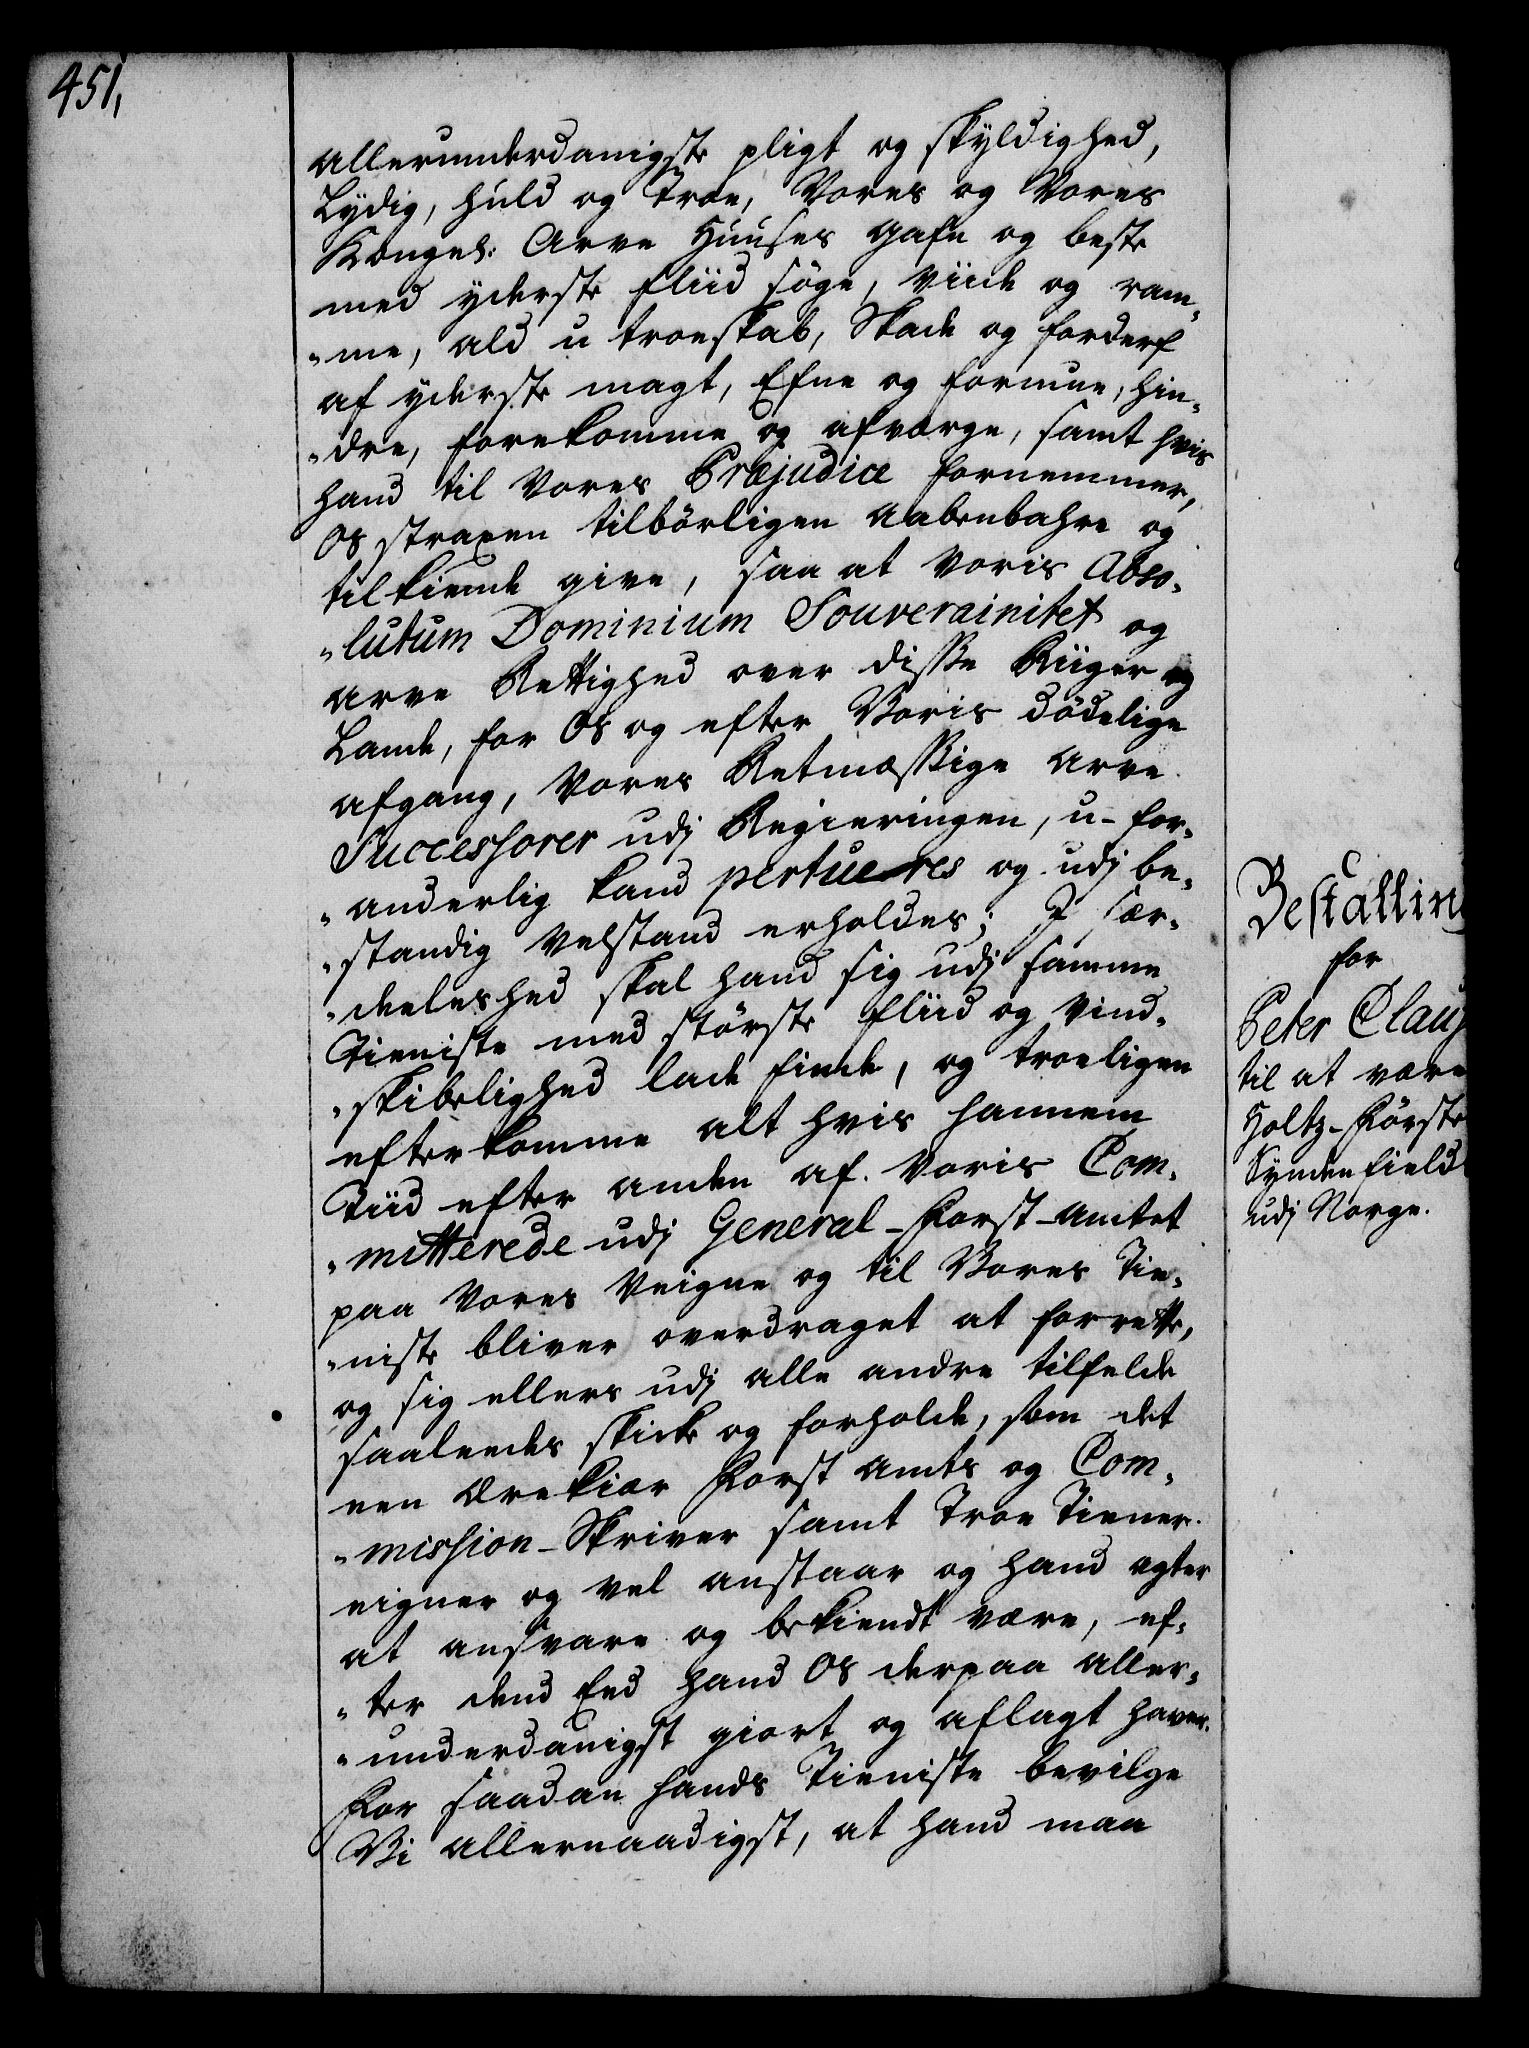 451,
allerunderdanigste pligt og skyldighed,
Lydig, huld og Troe, Vores og Vores
Kongel: Arve Huuses gafn og beste
med yderste fliid söge, viide og ram„
„me, ald u troeskab, Skade og forderf
af yderste magt, Efne og formue, hin„
„dre, forekomme og afværge, samt hvis
hand til Vores Præjudice fornemmer,
Os straxen tilbörligen aabenbahre og
tilkiende give, saa at Voris Abso„
„lutum Dominium Souverainitet og
arve Rettighed over disse Riiger og
Lande, for Os og efter Voris dödelige
afgang, Vores Retmæssige arve
Successorer udj Regieringen, u-for„
„anderlig kand pertueres og udj be„
„standig Velstand erholdes; J sær„
„deeleshed skal hand sig udj samme
Tieniste med störste fliid og vind„
„skibelighed lade finde, og troeligen
efterkomme alt hvis hannem
Tiid efter anden af Voris Com„
„mitterede udj General-Forst-amtet
paa Vores Veigne og til Vores Tie„
„niste bliver overdraget at forrette,
og sig ellers udj alle andre tilfelde
saaledes skicke og forholde, som det
een Ærekiær Forst amts og Com„
„mission-Skriver samt Troe Tiener
eigner og vel anstaar og hand agter
at ansvare og bekiendt være, ef„
„ter dend Eed hand Os derpaa aller„
„underdanigst giort og aflagt haver.
For saadan hands Tieniste bevilge
Vi allernaadigst, at hand maa
Bestalling
for
Peter Claus
til at være
Holtz-Förste
Syndenfield
udj Norge.